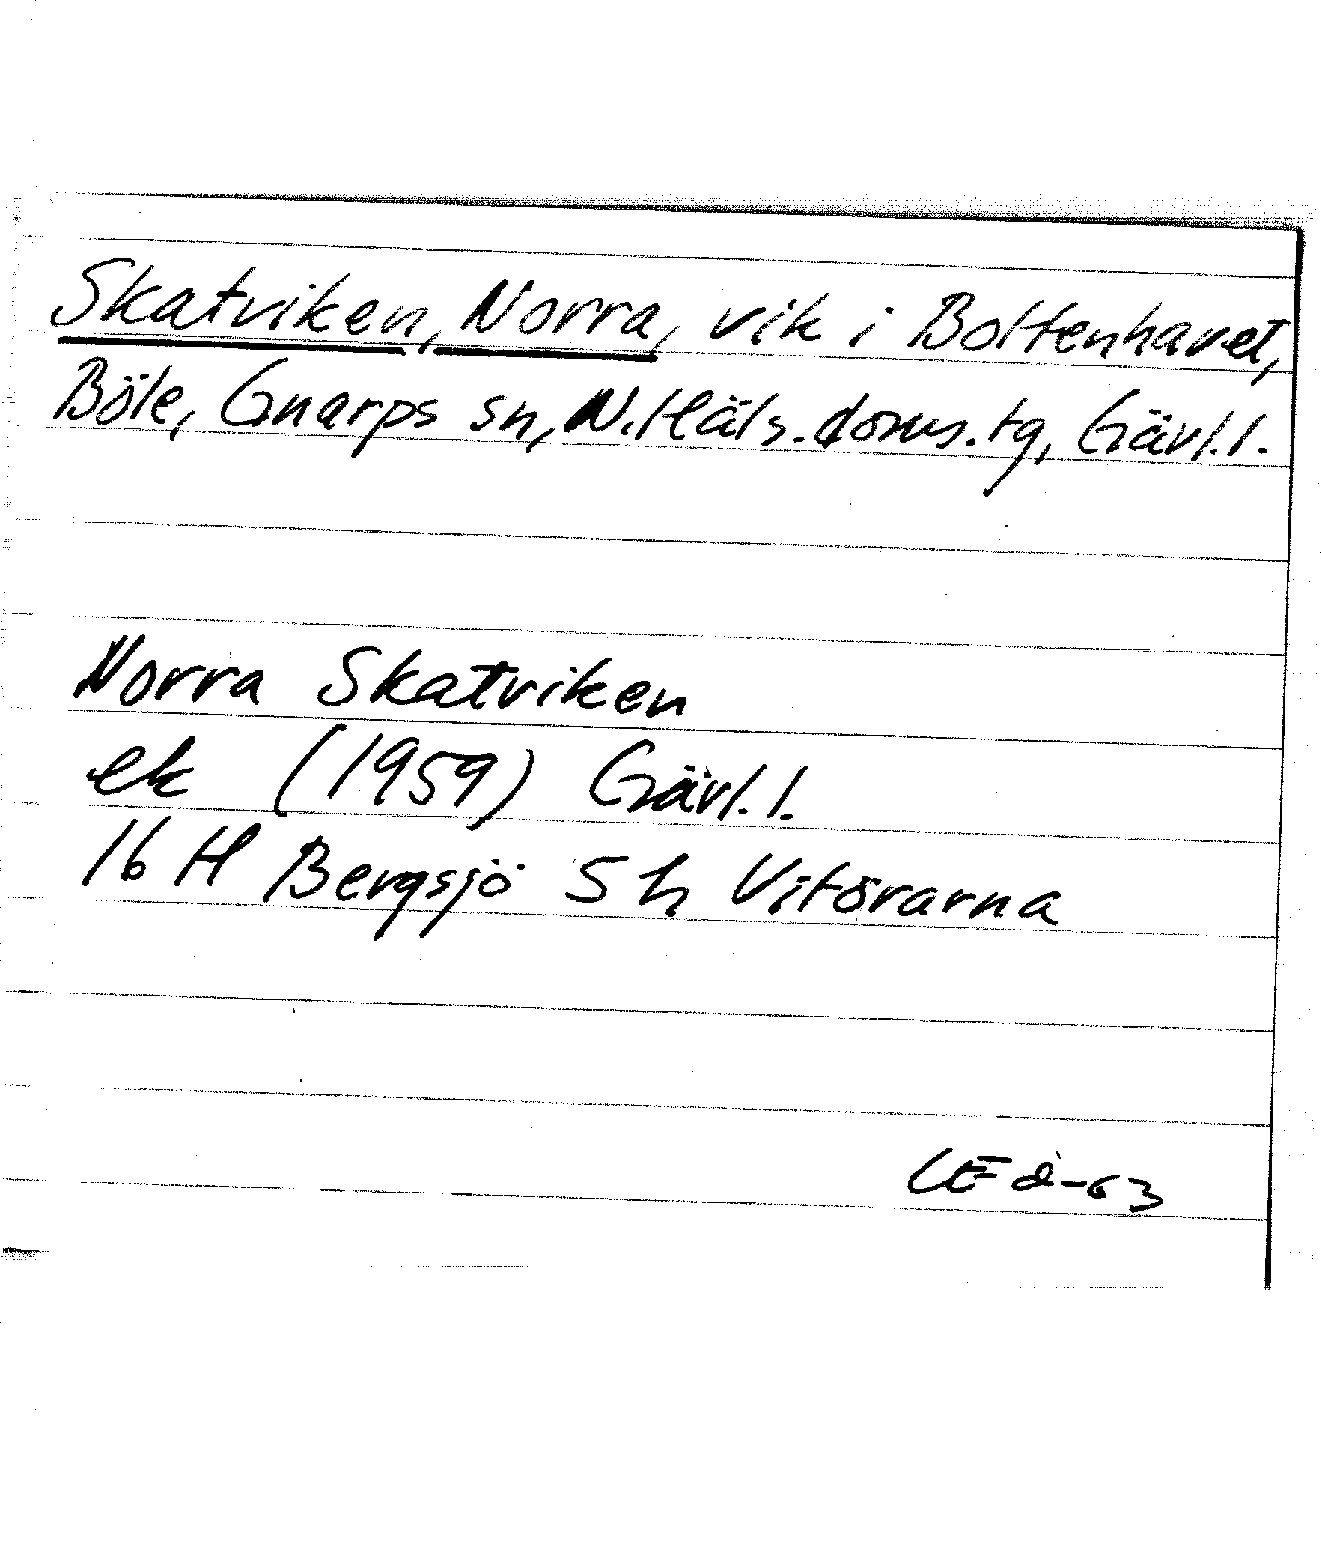 Skatviken, Norra, vik i Bottenhavet,
Böle, Gnarps sn, N.Häls.doms.tg, Gävl.l.
Norra Skatviken
ek (1959) Gävl.l.
16 H Bergsjö 5 h Vitörarna
CE a-63